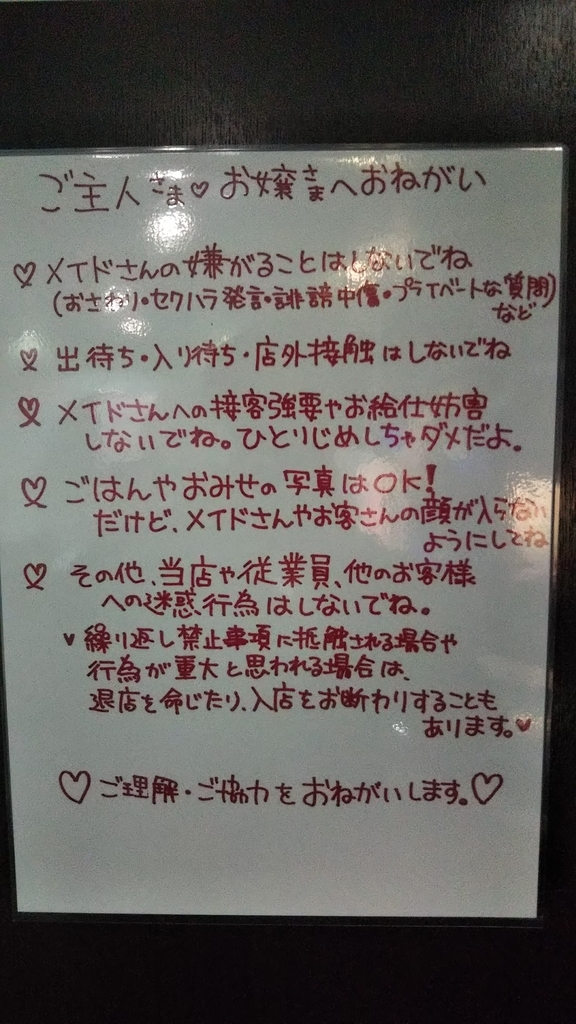 ご主人さま♡お嬢さまへおねがい
♡ メイドさんの嫌がることはしないでね
(おさわり・セクハラ発言・誹謗中傷・プライベートな質問)
など
♡ 出待ち・入り待ち・店外接触はしないでね
♡ メイドさんへの接客強要やお給仕妨害
しないでね。ひとりじめしちゃダメだよ。
♡ ごはんやおみせの写真はOK!
だけど、メイドさんやお客さんの顔が入らない
ようにしてね
♡ その他、当店や従業員、他のお客様
への迷惑行為はしないでね。
♥ 繰り返し禁止事項に抵触される場合や
行為が重大と思われる場合は、
退店を命じたり、入店をお断わりすることも
あります。♥
♡ご理解・ご協力をおねがいします。♡